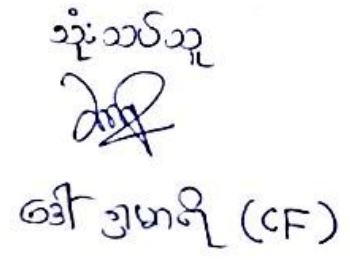 သုံးသပ်သူ
ဒေါ် ဥမာရီ (CF)